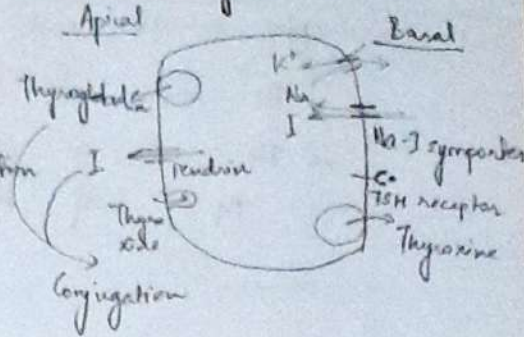 Apical
Basal
K+
Thyroglobulin
Na
I
Na-I symporter
I
Pendrin
TSH receptor
Thyro
Thyroxine
Conjugation